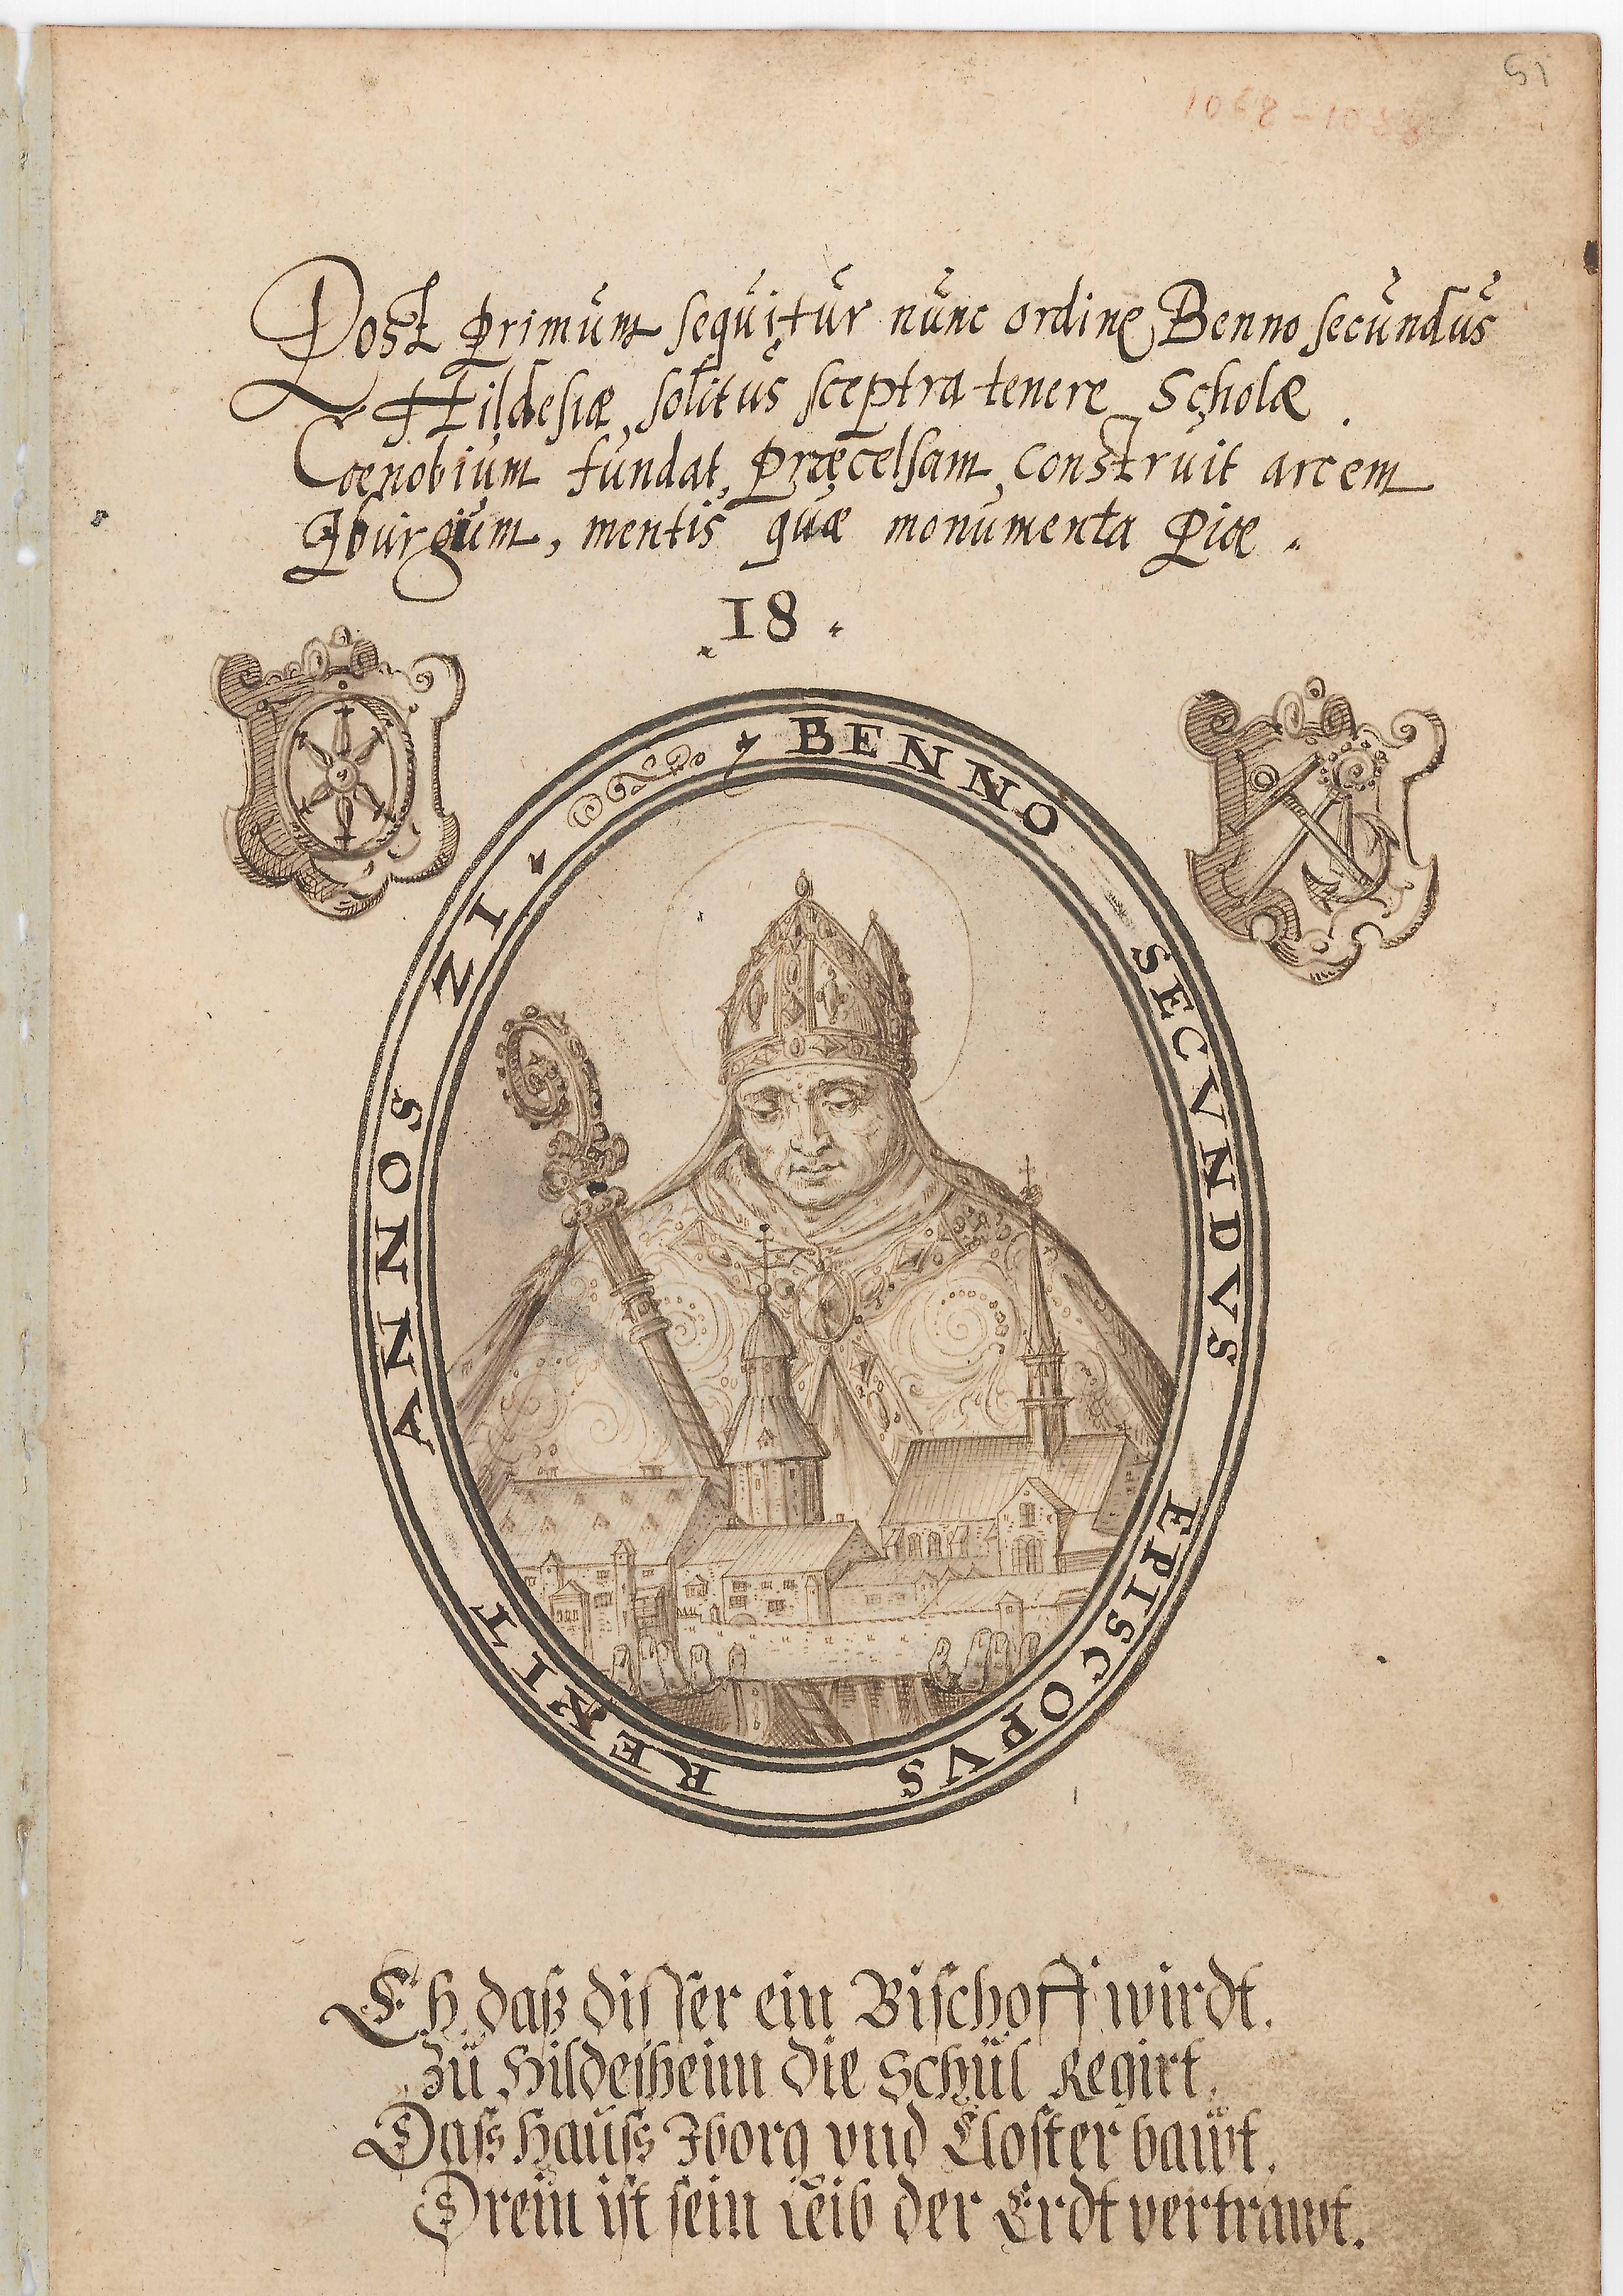 51
1068-1088
Post primum sequitur nunc ordine Benno secundus
Hildesiæ, solitus sceptra tenere Scholæ.
Coenobium fundat, Præcelsam, construit arcem
Iburgum, mentis quæ monumenta piæ.
18.
BENNO SECVNDVS EPISCOPVS REXIT ANNOS ZI.
Eh daß disser ein Bischoff wirdt.
Zu Hildesheim die Schül Regirt.
Dass hauss Iborg vnd Closter bawt.
Drein ist sein Leib der Erdt vertrawt.